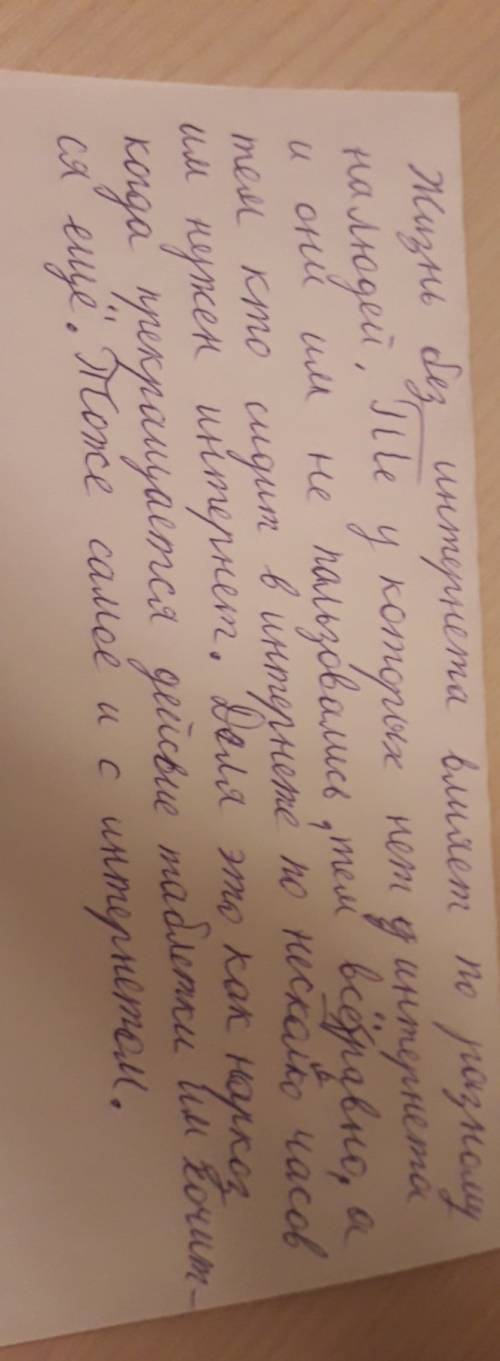 Жизнь без интернета влияет по разному
налюдей. Те у которых нет интернета
и они им не пользовались, тем всёравно, а
тем кто сидит в интернете по несколько часов
им нужен интернет. Доля это как наркоз
когда прекращается действие таблетки им хочит-
ся ещё. Тоже самое и с интернетом.